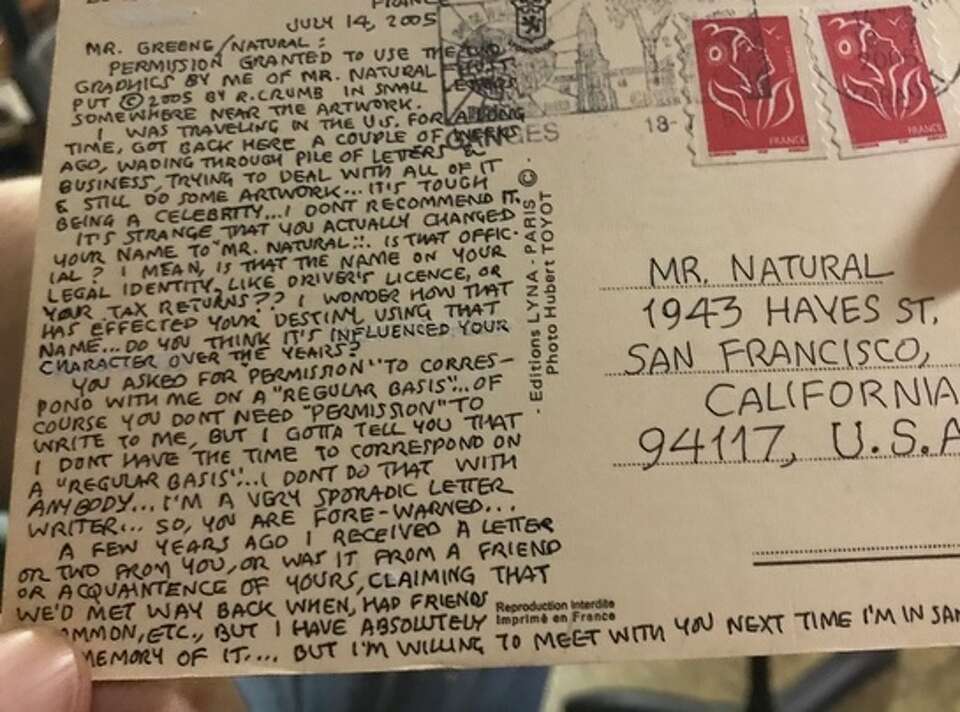 FRANCE
JULY 14, 2005
MR. GREENE/NATURAL:
PERMISSION GRANTED TO USE THE TWO
GRAPHICS BY ME OF MR. NATURAL
PUT © 2005 BY R. CRUMB IN SMALL
SOMEWHERE NEAR THE ARTWORK.
I WAS TRAVELING IN THE U.S. FOR A LONG
TIME, GOT BACK HERE A COUPLE OF WEEKS
AGO, WADING THROUGH PILE OF LETTERS &
BUSINESS, TRYING TO DEAL WITH ALL OF IT
& STILL DO SOME ARTWORK... IT'S TOUGH
BEING A CELEBRITY... I DONT RECOMMEND IT.
IT'S STRANGE THAT YOU ACTUALLY CHANGED
YOUR NAME TO "MR. NATURAL"... IS THAT OFFIC-
IAL? I MEAN, IS THAT THE NAME ON YOUR
LEGAL IDENTITY, LIKE DRIVER'S LICENCE, OR
YOUR TAX RETURNS?? I WONDER HOW THAT
HAS EFFECTED YOUR DESTINY, USING THAT
NAME... DO YOU THINK IT'S INFLUENCED YOUR
CHARACTER OVER THE YEARS?
YOU ASKED FOR "PERMISSION" TO CORRES-
POND WITH ME ON A "REGULAR BASIS"... OF
COURSE YOU DONT NEED "PERMISSION" TO
WRITE TO ME, BUT I GOTTA TELL YOU THAT
I DONT HAVE THE TIME TO CORRESPOND ON
A "REGULAR BASIS"... I DONT DO THAT WITH
ANYBODY... I'M A VERY SPORADIC LETTER
WRITER... SO, YOU ARE FORE-WARNED...
A FEW YEARS AGO I RECEIVED A LETTER
OR TWO FROM YOU, OR WAS IT FROM A FRIEND
OR ACQUAINTENCE OF YOURS, CLAIMING THAT
WE'D MET WAY BACK WHEN, HAD FRIENDS
COMMON, ETC., BUT I HAVE ABSOLUTELY
MEMORY OF IT.... BUT I'M WILLING TO MEET WITH YOU NEXT TIME I'M IN SAN
GANGES
13-
FRANCE
FRANCE
- Editions LYNA - PARIS ©
Photo Hubert TOYOT
MR. NATURAL
1943 HAYES ST.
SAN FRANCISCO,
CALIFORNIA
94117, U.S.A
Reproduction Interdite
Imprimé en France